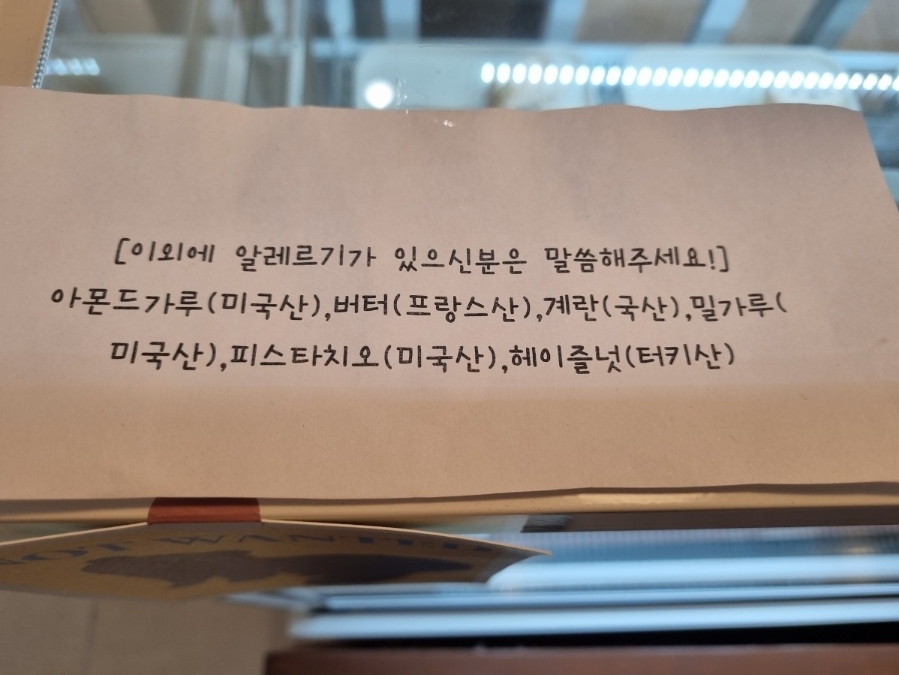 [이외에 알레르기가 있으신분은 말씀해주세요!]
아몬드가루(미국산),버터(프랑스산),계란(국산),밀가루(
미국산),피스타치오(미국산),헤이즐넛(터키산)
NOT WANTED